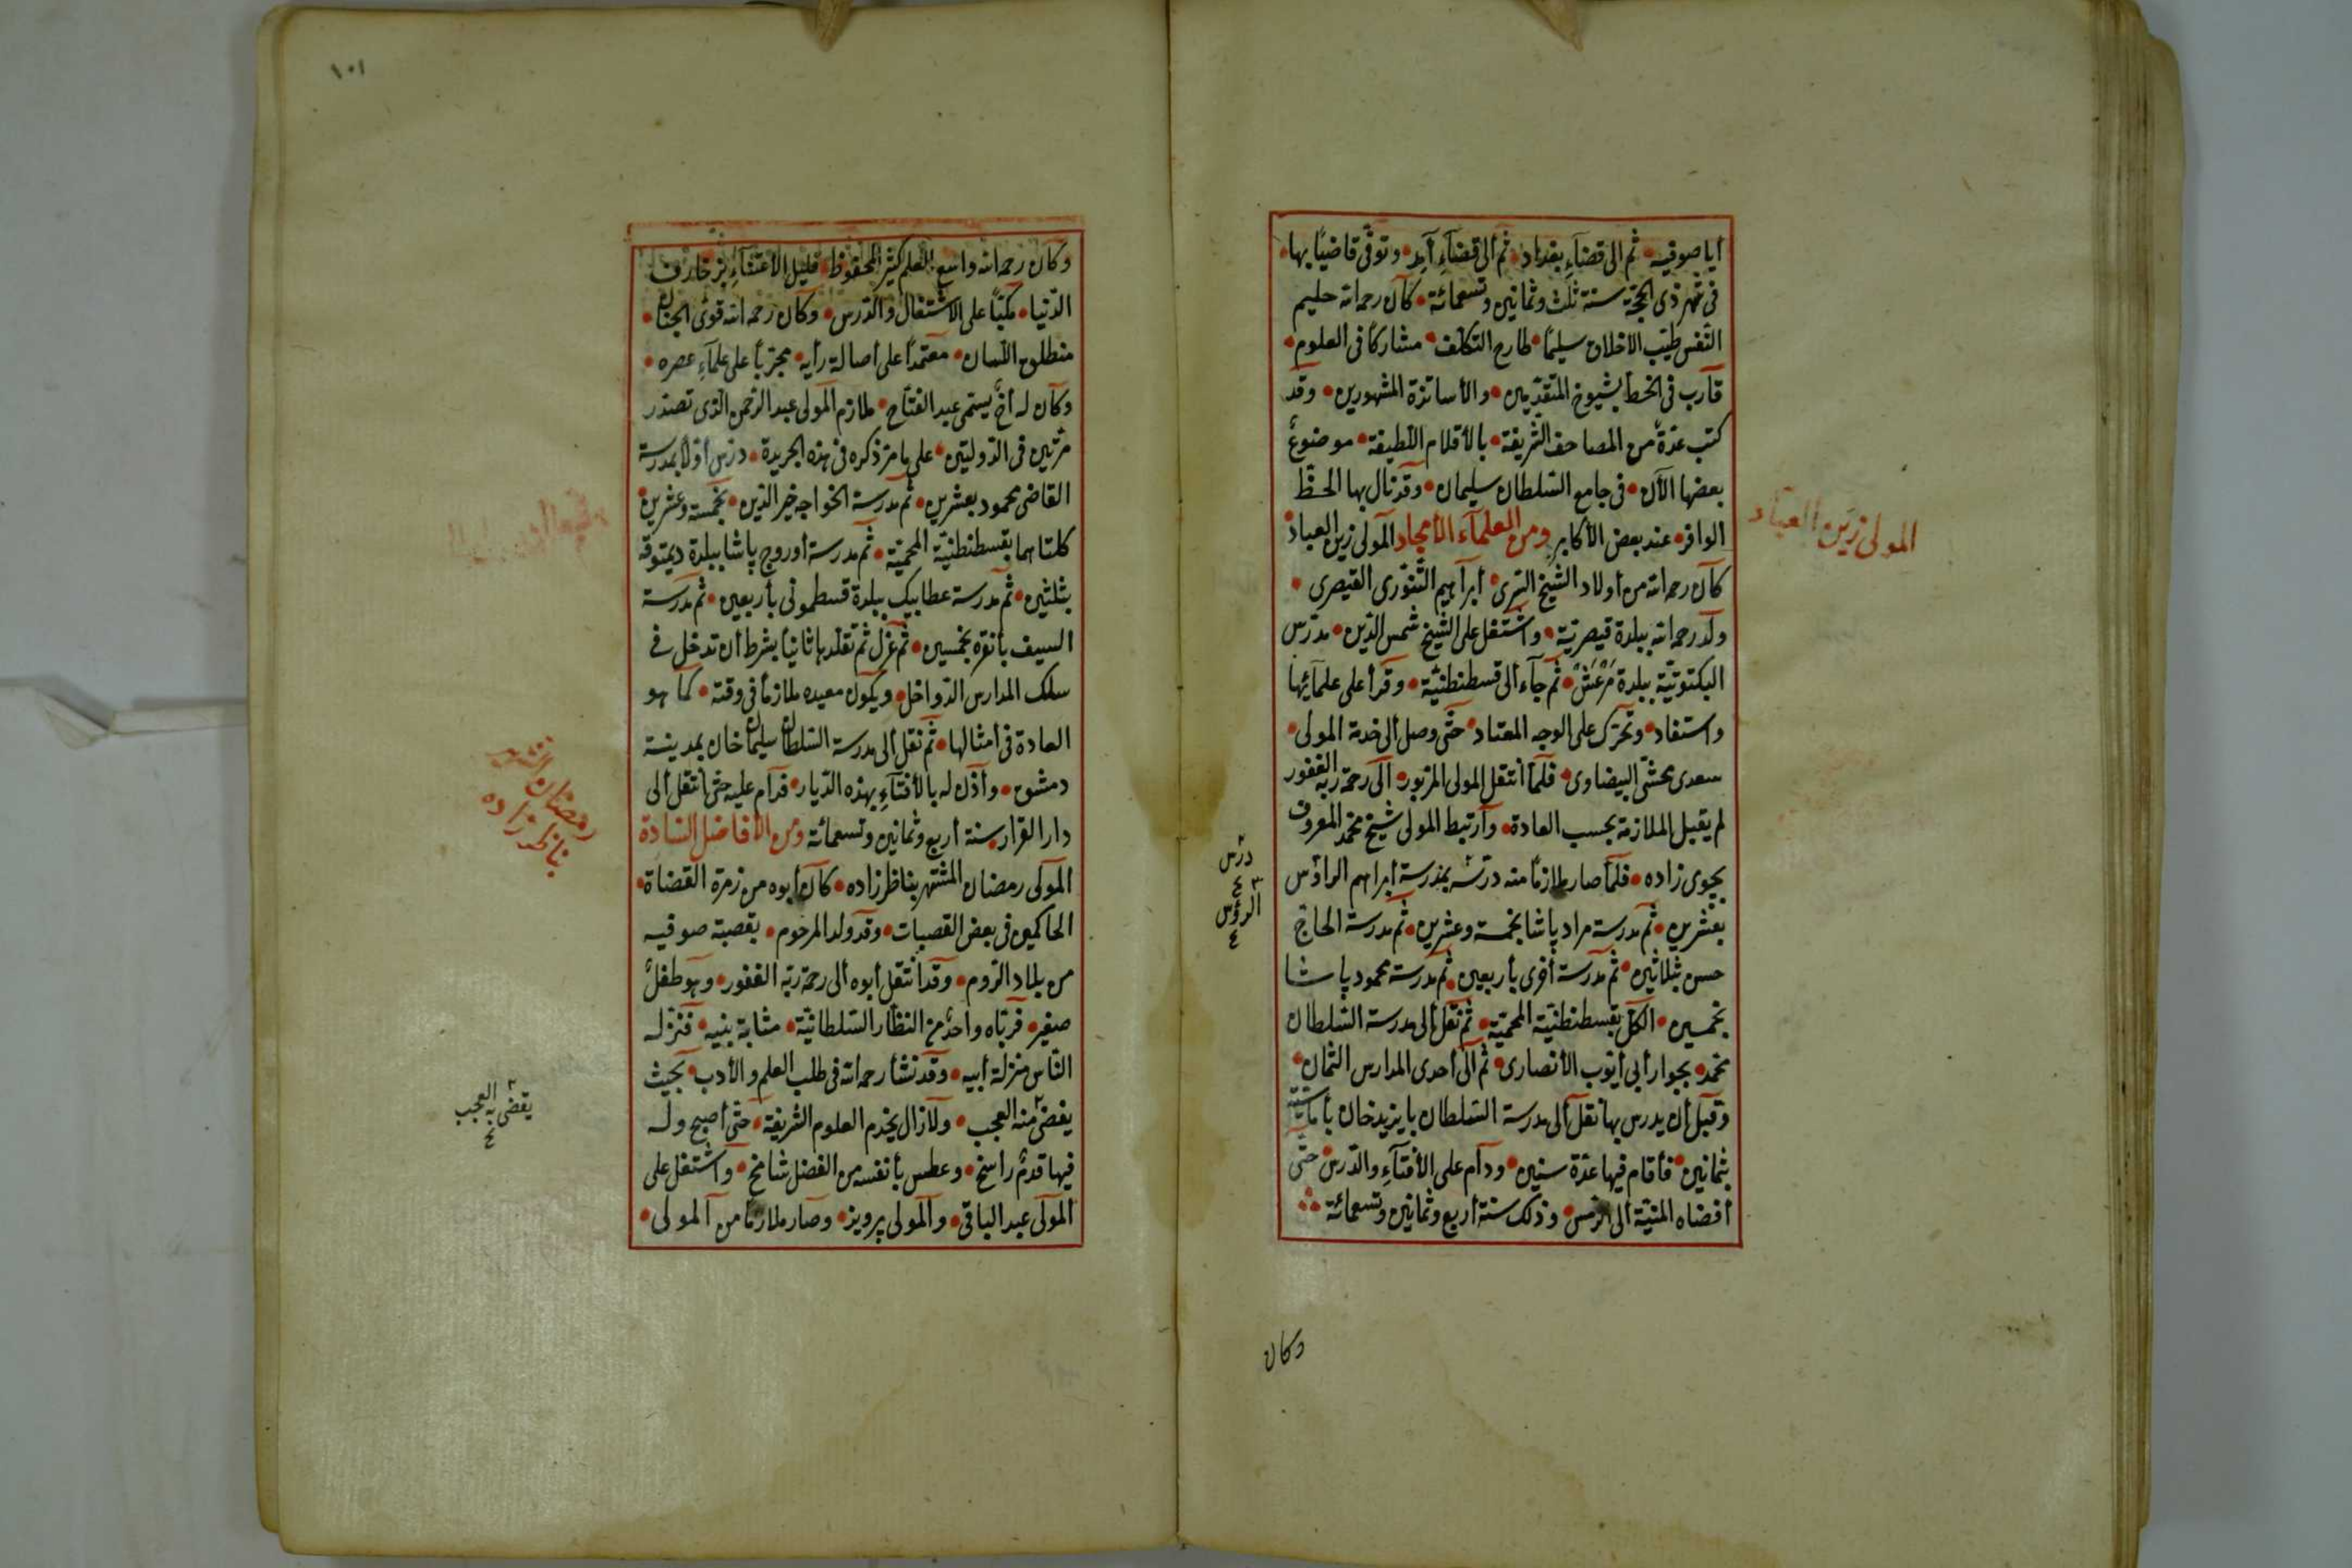 أيا صوفيه ثم الى قضآء بغداد ثم ألى قضآء آمد وتوفى قاضيًا بها
فى شهر ذى الحجة سنة ثلث وثمانين وتسعمائة كان رحمه الله حليم
النفس طيب الاخلاق سليمًا طارح التكلف مشاركًا فى العلوم
قارب فى الخط بشيوخ المتقدمين والأساتذة المشهورين وقد
كتب عدة من المصاحف الشريفة بالأقلام اللطيفة موضوع
بعضها الآن فى جامع السلطان سليمان وقد نال بها الحظ
الوافر عند بعض الأكابر ومن العلمآء الأمجاد المولى زين العباد
كان رحمه الله من أولاد الشيخ السرى أبرآهيم التنورى القيصرى
ولد رحمه الله ببلدة قيصرية واشتغل على الشيخ شمس الدين مدرس
البكتوتية ببلدة مرعش ثم جآء ألى قسطنطنية وقرأ على علمآئها
واستفاد وتحرك على الوجه المعتاد حتى وصل ألى خدمة المولى
سعدى محشى البيضاوى فلمآ أنتقل المولى المزبور ألى رحمة ربه الغفور
لم يقبل الملازمة بحسب العادة وارتبط المولى شيخ محمد المعروف
بجوى زاده فلمآ صار ملازمًا منه درسه بمدرسة أبراهيم الرآوس
بعشرين ثم مدرسة مراد پاشا بخمسة وعشرين ثم مدرسة الحاج
حسن بثلاثين ثم مدرسة أخرى بأربعين ثم مدرسة محمود پاشا
بخمسين الكل بقسطنطنية المحمية ثم نقل ألى مدرسة السلطان
محمد بجوار أبى أيوب الأنصارى ثم ألى أحدى المدارس الثمان
وقبل أن يدرس بها نقل ألى مدرسة السلطان بايزيد خان بأماسية
بثمانين فأقام فيها عدة سنين ودام على الأفتآء والدرس حتى
أفضاه المنية ألى الرمس وذلك سنة أربع وثمانين وتسعمائة
المولى زين العباد
درس
الرؤس
وكان
١٠١
وكان رحمه الله واسع العلم كثير المحفوظ قليل الأعتنآء بزخارف
الدنيا مكبًا على الاشتغال والدرس وكان رحمه الله قوى الجنان
منطلق اللسان معتمدًا على أصالة رأيه مجتريًا على علمآء عصره
وكان له أخ يسمى عبد الفتاح ملازم المولى عبد الرحمن الذى تصدر
مرتين فى الدولتين على ما مر ذكره فى هذه الجريدة درس أولا بمدرسة
القاضى محمود بعشرين ثم مدرسة الخواجه خير الدين بخمسة وعشرين
كلتاهما بقسطنطنية المحمية ثم مدرسة أوروج پاشا ببلدة ديمتوقه
بثلثين ثم مدرسة عطابيك ببلدة قسطمونى بأربعين ثم مدرسة
السيف بأنقره بخمسين ثم عزل ثم تقلدها ثانيا بشرط أن تدخل فى
سلك المدارس الدواخل ويكون معيده ملازمًا فى وقته كما هو
العادة فى أمثالها ثم نقل ألى مدرسة السلطان سليمان خان بمدينة
دمشق وأذن له بالأفتآء بهذه الديار فدام عليه حتى أنتقل ألى
دار القرار سنة أربع وثمانين وتسعمائة ومن الأفاضل السادة
المولى رمضان المشتهر بناظر زاده كان أبوه من زمرة القضاة
الحاكمين فى بعض القصبات وقد ولد المرحوم بقصبة صوفيه
من بلاد الروم وقد أنتقل أبوه ألى رحمة ربه الغفور وهو طفل
صغير فرباه واحد من النظار السلطانية مثابة بنيه فنزله
الناس منزلة أبيه وقد نشأ رحمه الله فى طلب العلم والأدب بحيث
يغضى منه العجب ولا زال يخدم العلوم الشريفة حتى أصبح وله
فيها قدم رأسخ وعطس بأنفسه من الفضل شامخ وأشتغل على
المولى عبد الباقى والمولى پرويز وصار ملازمًا من المولى
رمضان الشهير
بناظر زاده
يقضى به العجب